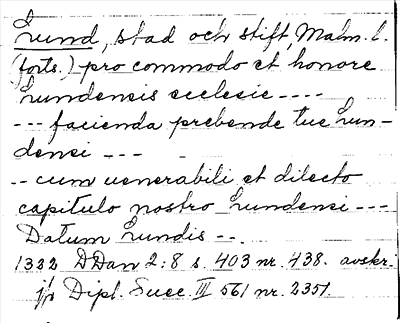 Lund, stad och stift, Malm. l.
(forts.) pro commodo et honore
Lundensis ecclesie ----
--- facienda prebende tue Lun-
densi --- -
-- cum uenerabili et dilecto
capitulo nostro Lundensi ---
Datum Lundis --.
1322 DDan 2:8 s. 403 nr. 438. avskr.
jfr Dipl. Suec. III 561 nr. 2351